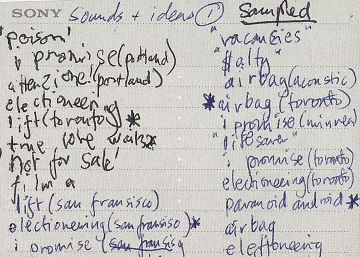 SONY sounds + ideas ①
'poison'
i promise (portland)
attenzione! (portland)
electioneering
lift (toronto) *
true love waits *
'not for sale'
film a
lift (san fransisco)
electioneering (san fransiso) *
i promise (san fransisq
Sampled
"vacancies"
$alty
airbag (acoustic)
*airbag (toronto)
i promise (minnea)
"lifesaver"
i promise (toronto)
electioneering (toronto)
paranoid android *
airbag
eleftoneering